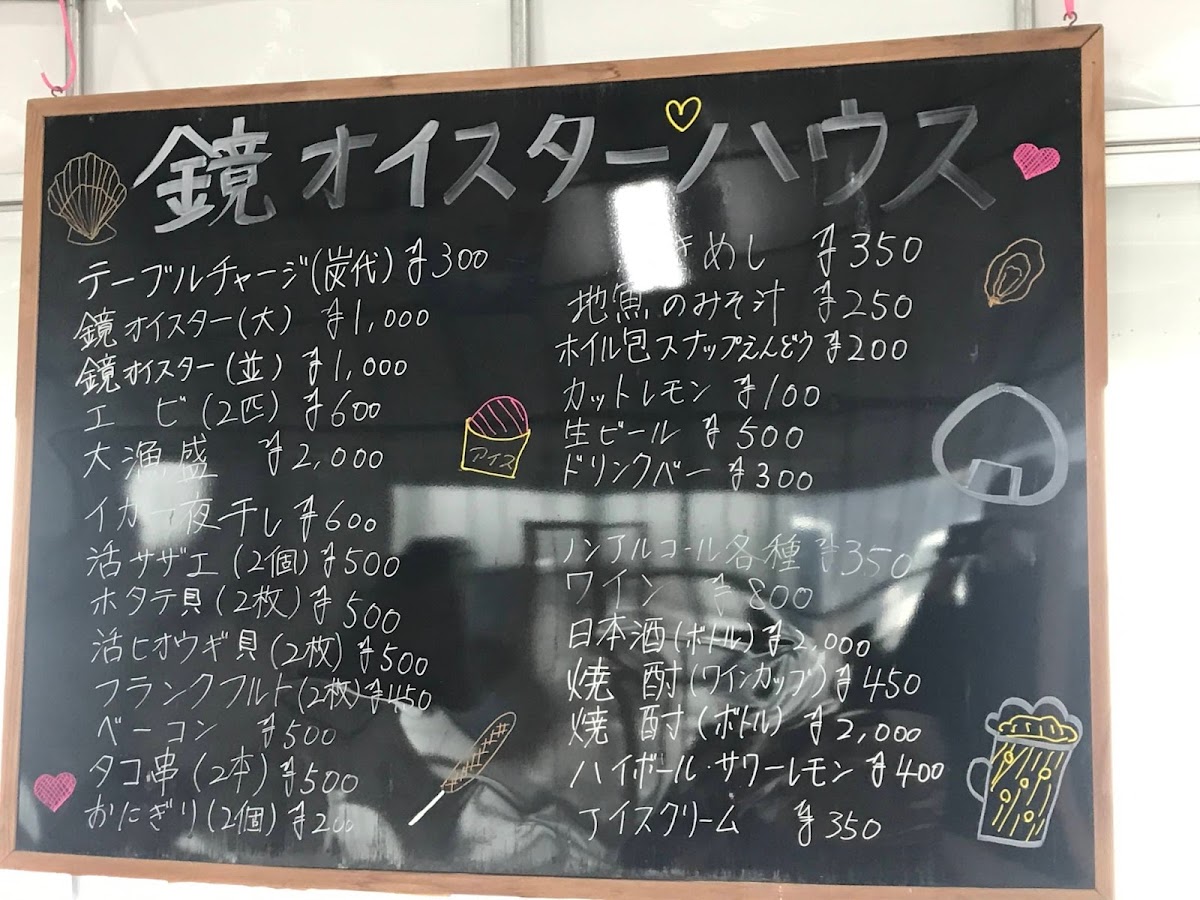 鏡オイスターハウス
テーブルチャージ(炭代) ¥300
鏡オイスター(大) ¥1,000
鏡オイスター(並) ¥1,000
エビ(2匹) ¥600
大漁盛 ¥2,000
イカ一夜干し ¥600
活サザエ(2個) ¥500
ホタテ貝(2枚) ¥500
活ヒオウギ貝(2枚) ¥500
フランクフルト(2枚) ¥450
ベーコン ¥500
タコ串(2本) ¥500
おにぎり(2個) ¥200
アイス
きめし ¥350
地魚のみそ汁 ¥250
ホイル包スナップえんどウ ¥200
カットレモン ¥100
生ビール ¥500
ドリンクバー ¥300
ノンアルコール各種 ¥350
ワイン ¥800
日本酒(ボトル) ¥2,000
焼酎(ワインカップ) ¥450
焼酎(ボトル) ¥2,000
ハイボール・サワーレモン ¥400
アイスクリーム ¥350